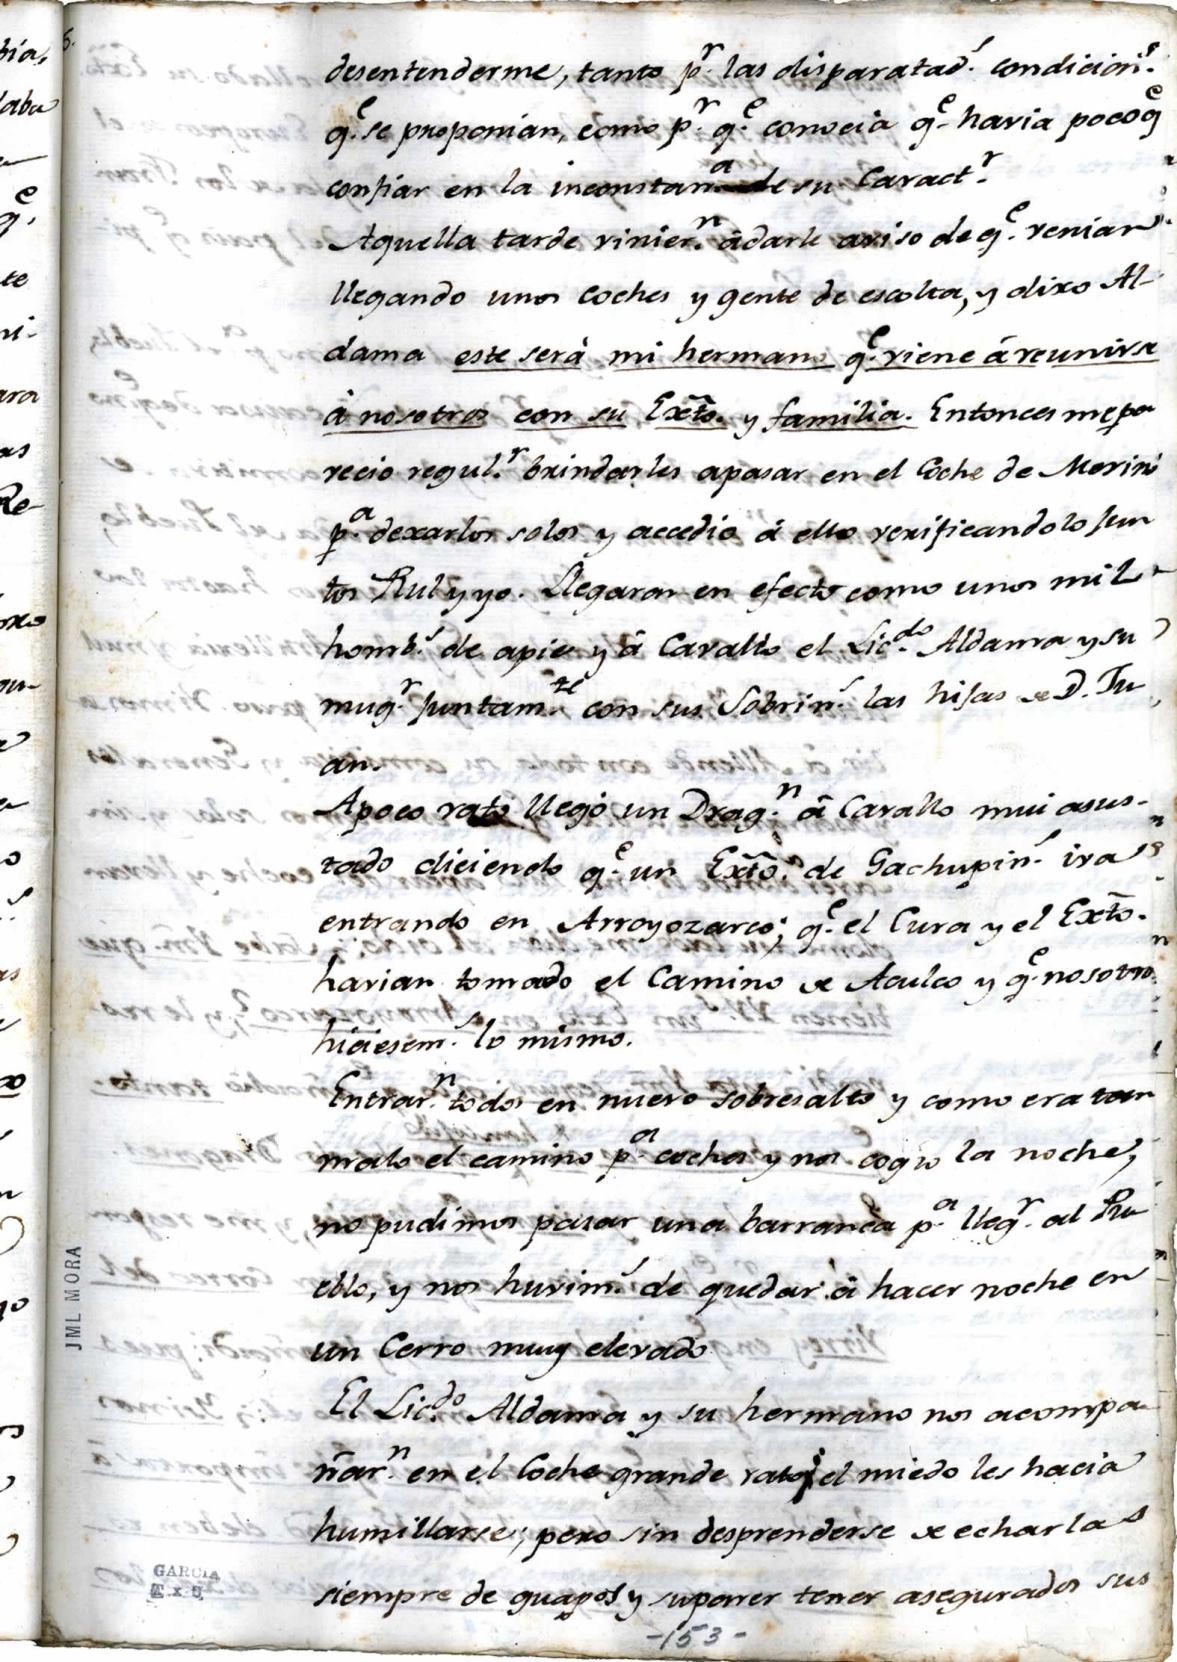 desentenderme, tanto pr. las disparatads. condicions.
qe. se proponian, como pr. qe. conocia qe. havia poco qe
confiar en la inconstana. de su Caractr.
Aquella tarde viniern. â darle aviso de qe. venian
llegando unos coches y gente de escolta, y dixo Al-
dama este serà mi hermano qe. viene á reunirse
â nosotros con su Exto. y familia. Entonces me pa
recio regulr. brindarles a pasar en el Coche de Merino
pa. dexarlos solos y accedio á ello verificandolo jun
tos Rul y yo. Llegaron en efecto como unos mil
hombs. de apie y â Cavallo el Licdo. Aldama y su
mugr. juntamte. con sus Sobrins. las hijas de D. Ju
an.
Apoco rato llegó un Dragn. â Cavallo mui asus-
tado diciendo qe. un Exto. de Gachupins. iva
entrando en Arroyozarco; qe. el Cura y el Exto.
havian tomado el Camino de Aculco y qe. nosotros
hiciesems. lo mismo.
Entrarn. todos en nuevo sobresalto y como era tan
malo el camino pa. coches y nos cogio la noche,
no pudimos pasar una barranca pa. llegr. al Pu
eblo, y nos huvims. de quedar â hacer noche en
un Cerro muy elevado
El Licdo. Aldama y su hermano nos acompa
ñarn. en el Coche grande rato; el miedo les hacia
humillarse; pero sin desprenderse de echarlas
siempre de guapos y suponer tener asegurados sus
-153-
JML MORA
GARCIA